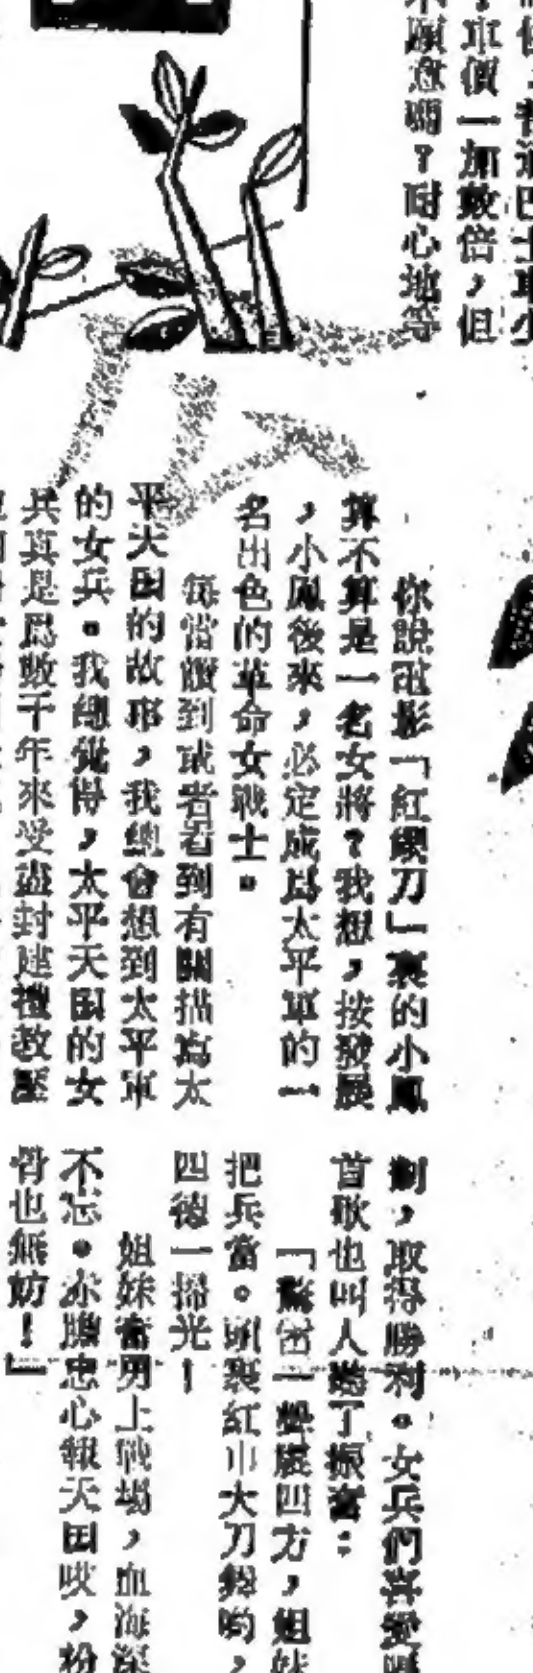 普通巴士車少
車價一加數倍，但
願意嗎？耐心地等
你說電影「紅纓刀」裏的小鳳
算不算是一名女將？我想，按發展
，小鳳後來，必定成爲太平軍的一
名出色的革命女戰士。
每當讀到或者看到有關描寫太
平天囯的故事，我總會想到太平軍
的女兵。我總覺得，太平天囯的女
兵真是爲數千年來受盡封建禮教壓
制，取得勝利。女兵們喜愛
首歌也叫人聽了振奮：
「一聲震四方，姐妹
把兵當。頭裹紅巾大刀喲，
四德一掃光！
姐妹當男上戰場，血海深
不忘。赤膽忠心報天囯哎，粉
骨也無妨！』